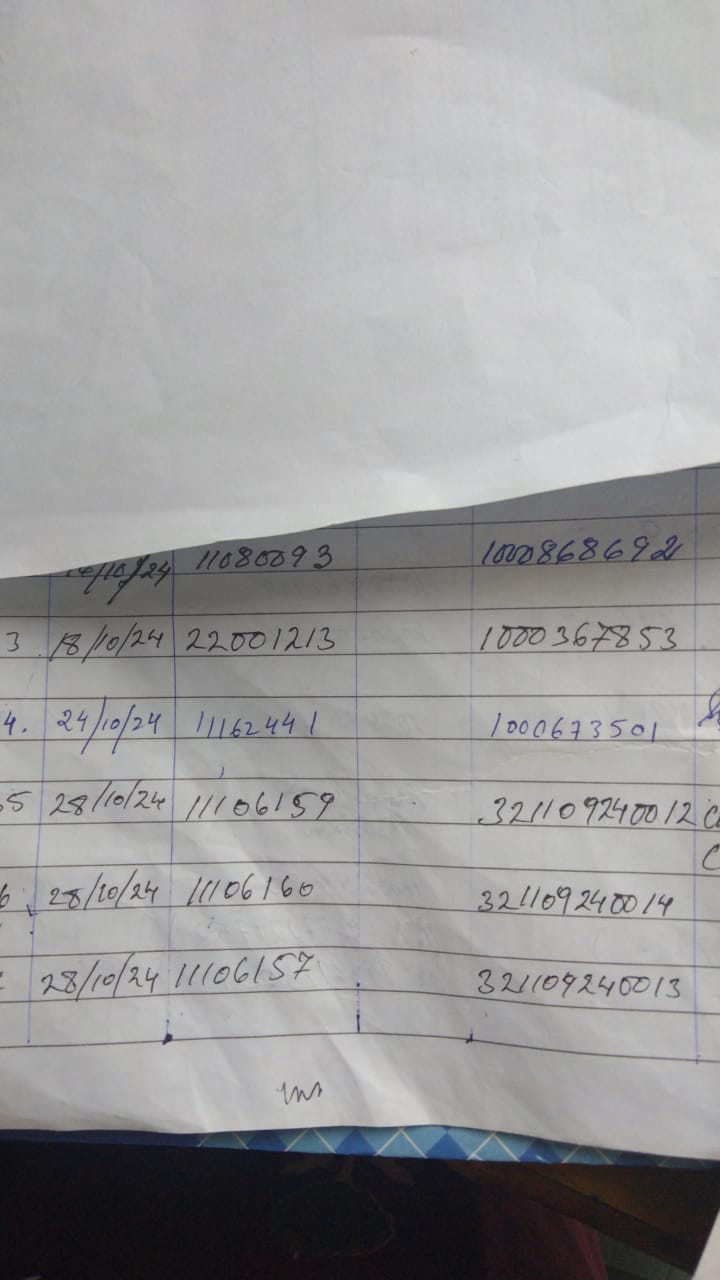 11080093 1000868692
3 18/10/24 22001213 1000367853
4. 24/10/24 11162441 1000673501
5 28/10/24 11106159 321109240012
6 28/10/24 11106160 321109240014
28/10/24 11106157 321109240013